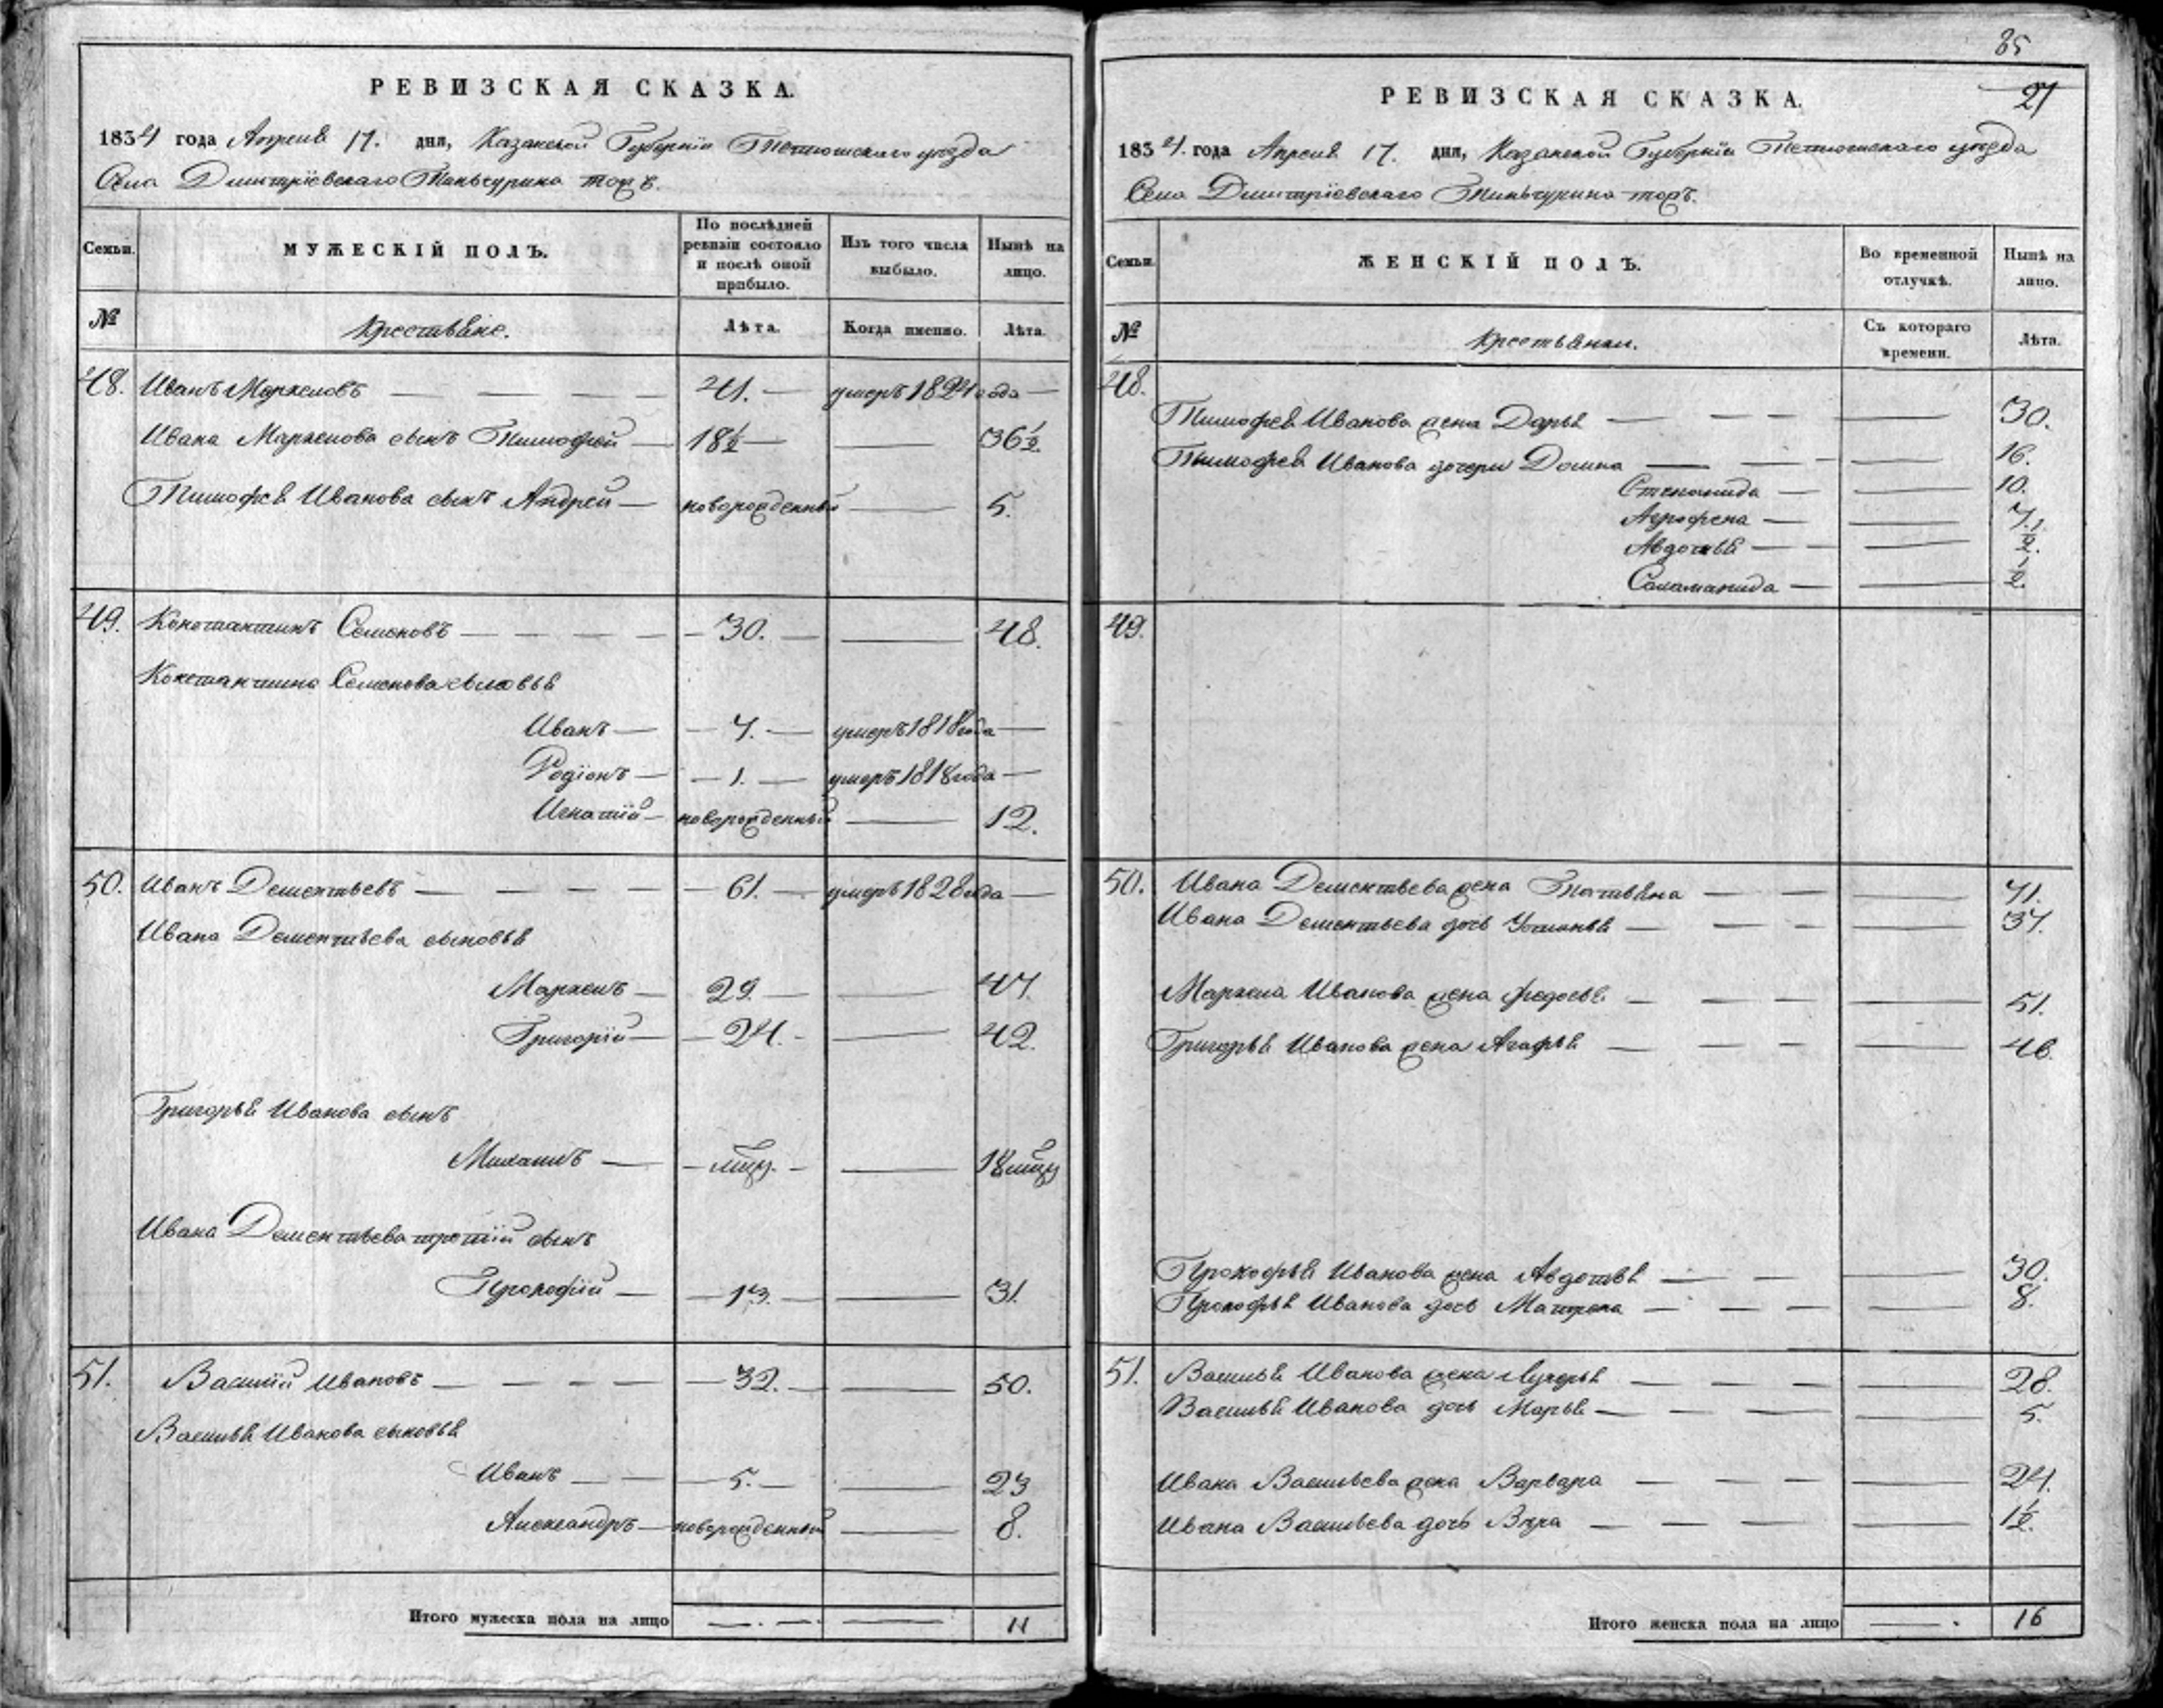 РЕВИЗСКАЯ СКАЗКА.
1834 года Апреля 17. дня, Казанской Губернiи Тетюшскаго уезда
Села Дмитрiевскаго Тиньчурина тожъ.
Семьи.
МУЖЕСКIЙ ПОЛЪ.
По послѣдней ревизiи состояло и послѣ оной прибыло.
Изъ того числа выбыло.
Нынѣ на лицо.
№
Крестьяне.
Лѣта.
Когда именно.
Лѣта.
48. Иванъ Маркеловъ 41. умеръ 1824 года
Ивана Маркелова сынъ Тимофей 18½ 36½.
Тимофея Иванова сынъ Андрей новорожденный 5.
49. Константинъ Семеновъ 30. 48.
Константина Семенова сыновья
Иванъ 7. умеръ 1818 года
Родiонъ 1. умеръ 1818 года
Игнатiй новорожденный 12.
50. Иванъ Дементьевъ 61. умеръ 1828 года
Ивана Дементьева сыновья
Маркелъ 29. 47.
Григорiй 24. 42.
Григорья Иванова сынъ
Михаилъ 18
Ивана Дементьева третiй сынъ
Прокофiй 13. 31.
51. Василiй Ивановъ 32. 50.
Василья Иванова сыновья
Иванъ 5. 23
Александръ новорожденный 8.
Итого мужеска пола на лицо 11
85
27
РЕВИЗСКАЯ СКАЗКА.
1834. года Апреля 17. дня, Казанской Губернiи Тетюшскаго уезда
Села Дмитрiевскаго Тиньчурина тожъ.
Семьи.
ЖЕНСКIЙ ПОЛЪ.
Во временной отлучкѣ.
Нынѣ на лицо.
№
Крестьянки.
Съ котораго времени.
Лѣта.
48.
Тимофея Иванова жена Дарья 30.
Тимофея Иванова дочери Домна 16.
Степанида 10.
Агрофена 7.
Авдотья ½.
Саламанида ½.
49.
50. Ивана Дементьева жена Татьяна 71.
Ивана Дементьева дочь Устинья 37.
Маркела Иванова жена Федосья 51.
Григорья Иванова жена Агафья 46.
Прокофья Иванова жена Авдотья 30.
Прокофья Иванова дочь Матрена 8.
51. Василья Иванова жена Лукерья 28.
Василья Иванова дочь Марья 5.
Ивана Васильева жена Варвара 24.
Ивана Васильева дочь Вера 1½.
Итого женска пола на лицо 16